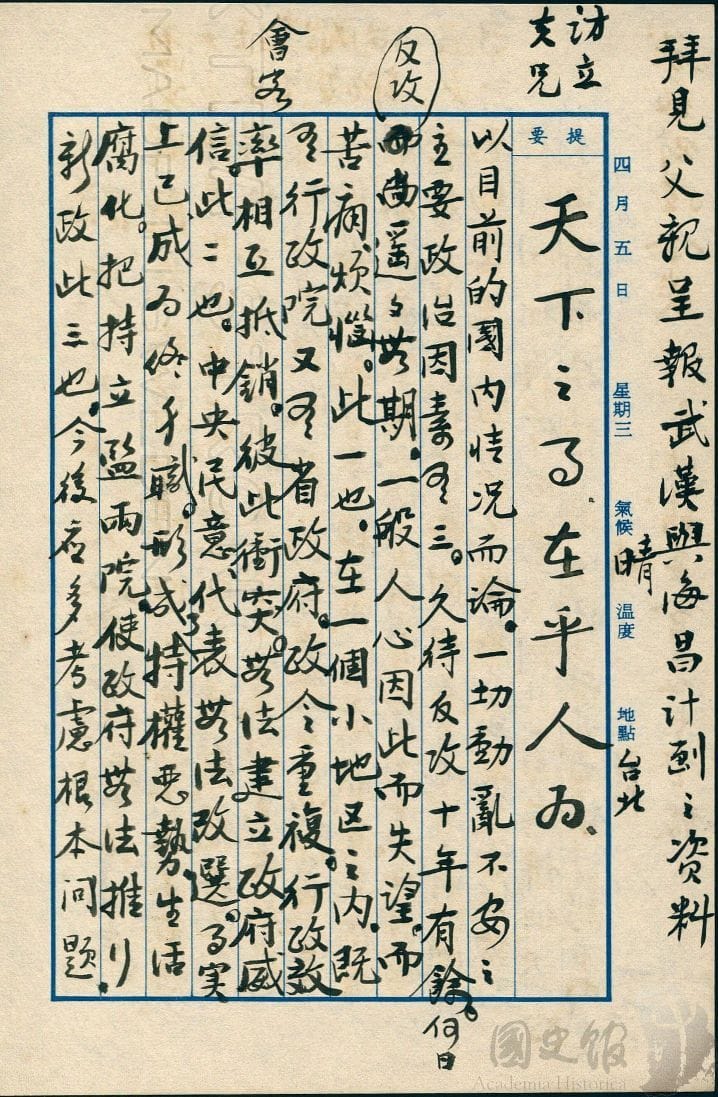 拜見父親呈報武漢與海昌計劃之資料
訪立
夫兄
反攻
會客
四月五日 星期三 氣候 晴 溫度 地點 台北
提要
天下之事、在乎人為、
以目前的國內情況而論。一切動亂不安之
主要政治因素有三。久待反攻十年有餘。何日
西尚遥遥無期。一般人心因此而失望。而
苦痛煩惱。此一也。在一個小地区之內。既
有行政院又有省政府。政令重複。行政效
率相互抵銷。彼此衝突。無法建立政府威
信。此二也。中央民意代表無法改選。事实
上已成為終身職。形成特權惡勢。生活
腐化。把持立監兩院。使政府無法推行
新政此三也。今後应多考慮根本问题。
國史館
Academia Historica